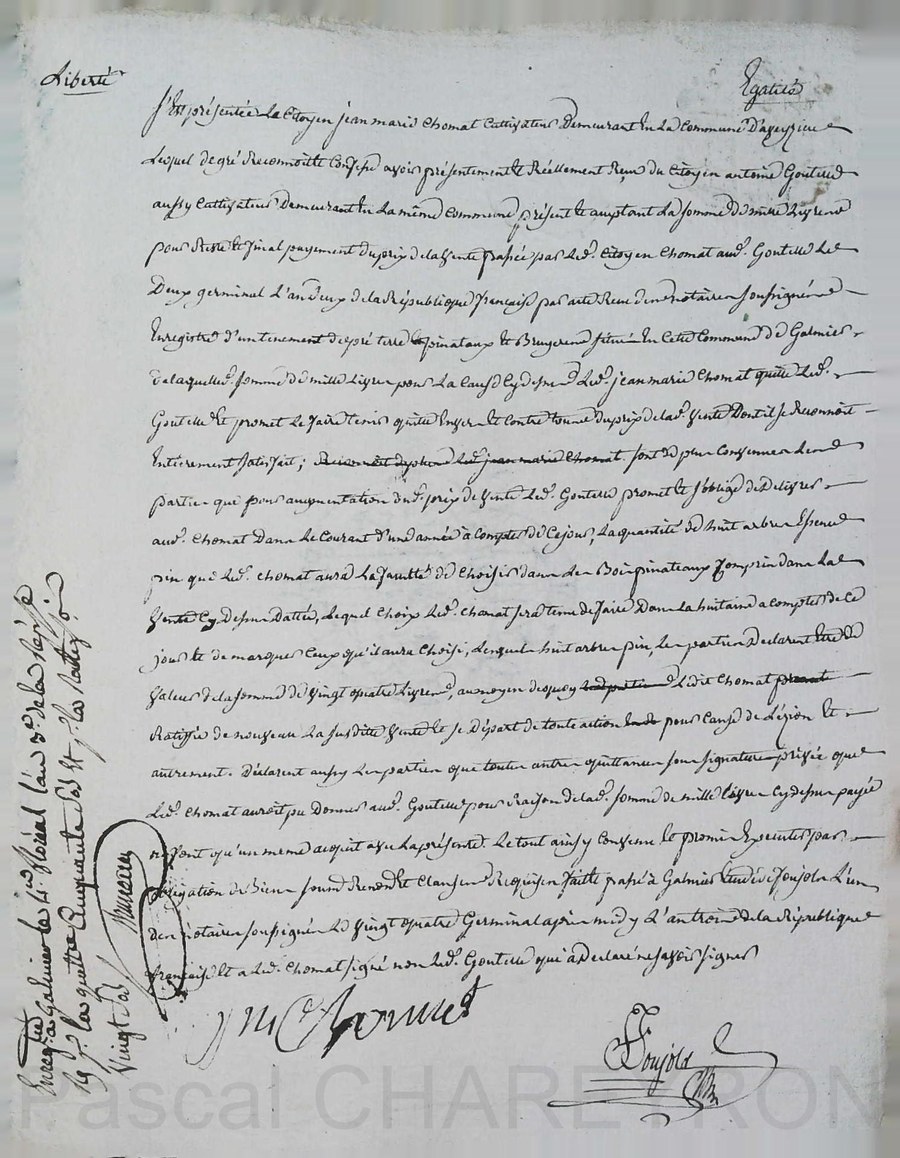 Liberté
Egalité
S'Est présentée Le Citoyen jean marie Chomat Cultivateur Demeurant En La Commune D'aveyzieu
Lequel de gré Reconnoit et Confesse avoir présentement et Réellement Reçu du Citoyen antoine Goutelle
aussy Cultivateur Demeurant En La même Commune présent et acceptant La somme de mille Livres
pour Reste et final payement du prix de la Vente passée par Led. Citoyen Chomat aud. Goutelle Le
Deux germinal L'an Deux de la République française par acte Reçu des notaires soussignés
Enregistré d'un tenement de pré terre pinataux et Bruyeres situé En Cette Commune de Galmier
de laquelle somme de mille Livres pour La Cause Cy dessus Led. jean marie Chomat quitte Led.
Goutelle et promet Le faire tenir quitte Envers et Contre tous du prix de lad. Vente Dont il se Reconnoit
Entierement satisfait; Led. jean marie Chomat. sont de plus Convenues Les
parties que pour augmentation dud. prix de Vente Led. Goutelle promet et s'oblige de Délivrer
aud. Chomat Dans Le Courant d'une année à Compter de Ce jour, La quantité de huit arbres Essence
pin que Led. Chomat aura La faculté de Choisir dans Les Bois pinateaux Compris dans La
Vente Cy Dessus Dattée, Lequel Choix Led. Chomat sera tenu de faire Dans La huitaine a Compter de Ce
jour et de marquer Ceux qu'il aura Choisi, Lesquels huit arbres pin, Les parties Déclarent Etre de
Valeur de la somme de Vingt quatre Livres, au moyen de quoy Ledit Chomat
Ratiffie de nouveau La susditte Vente et se Départ de toute action pour Cause de Lézion et
autrement. Déclarent aussy Les parties que toutes autres quittances sous signature privée que
Led. Chomat auroit pu Donner aud. Goutelle pour Raison de lad. somme de mille Livres Cy dessus payée
ne font qu'un meme acquit avec La présente. Le tout ainsy Convenu et promis Executer par
obligation de Biens soumis Renon et Clauses Requises fait et passé à Galmier Etude de foujols L'un
des notaires soussignés Le Vingt quatre Germinal après midy L'an troisième de la République
française et a Led. Chomat signé non Led. Goutelle qui a Déclaré ne savoir signer
jm Chomat
foujols
Enreg. à Galmier le floréal l'an 3e de la Rép.
la quittce Cinquante sols et la Ratif.on
Vingt sols